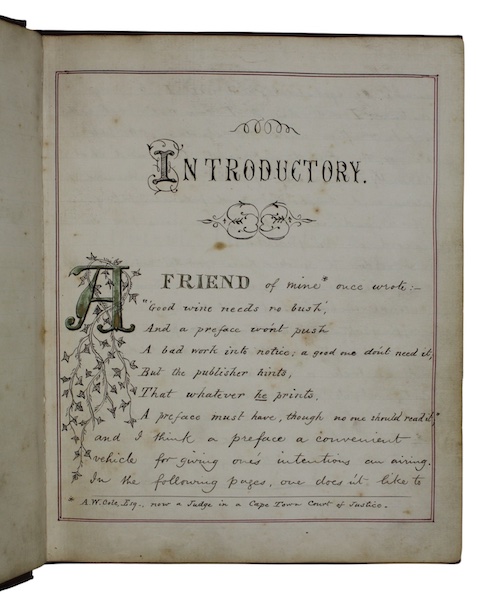 INTRODUCTORY.
A FRIEND of mine* once wrote:-
"Good wine needs no bush,
And a preface won't push
A bad work into notice; a good one don't need it;
But the publisher hints,
That whatever he prints,
A preface must have, though no one should read it,"
and I think a preface a convenient
vehicle for giving one's intentions an airing.
In the following pages, one does it like to
* A.W. Cole, Esq., now a Judge in a Cape Town Court of Justice.